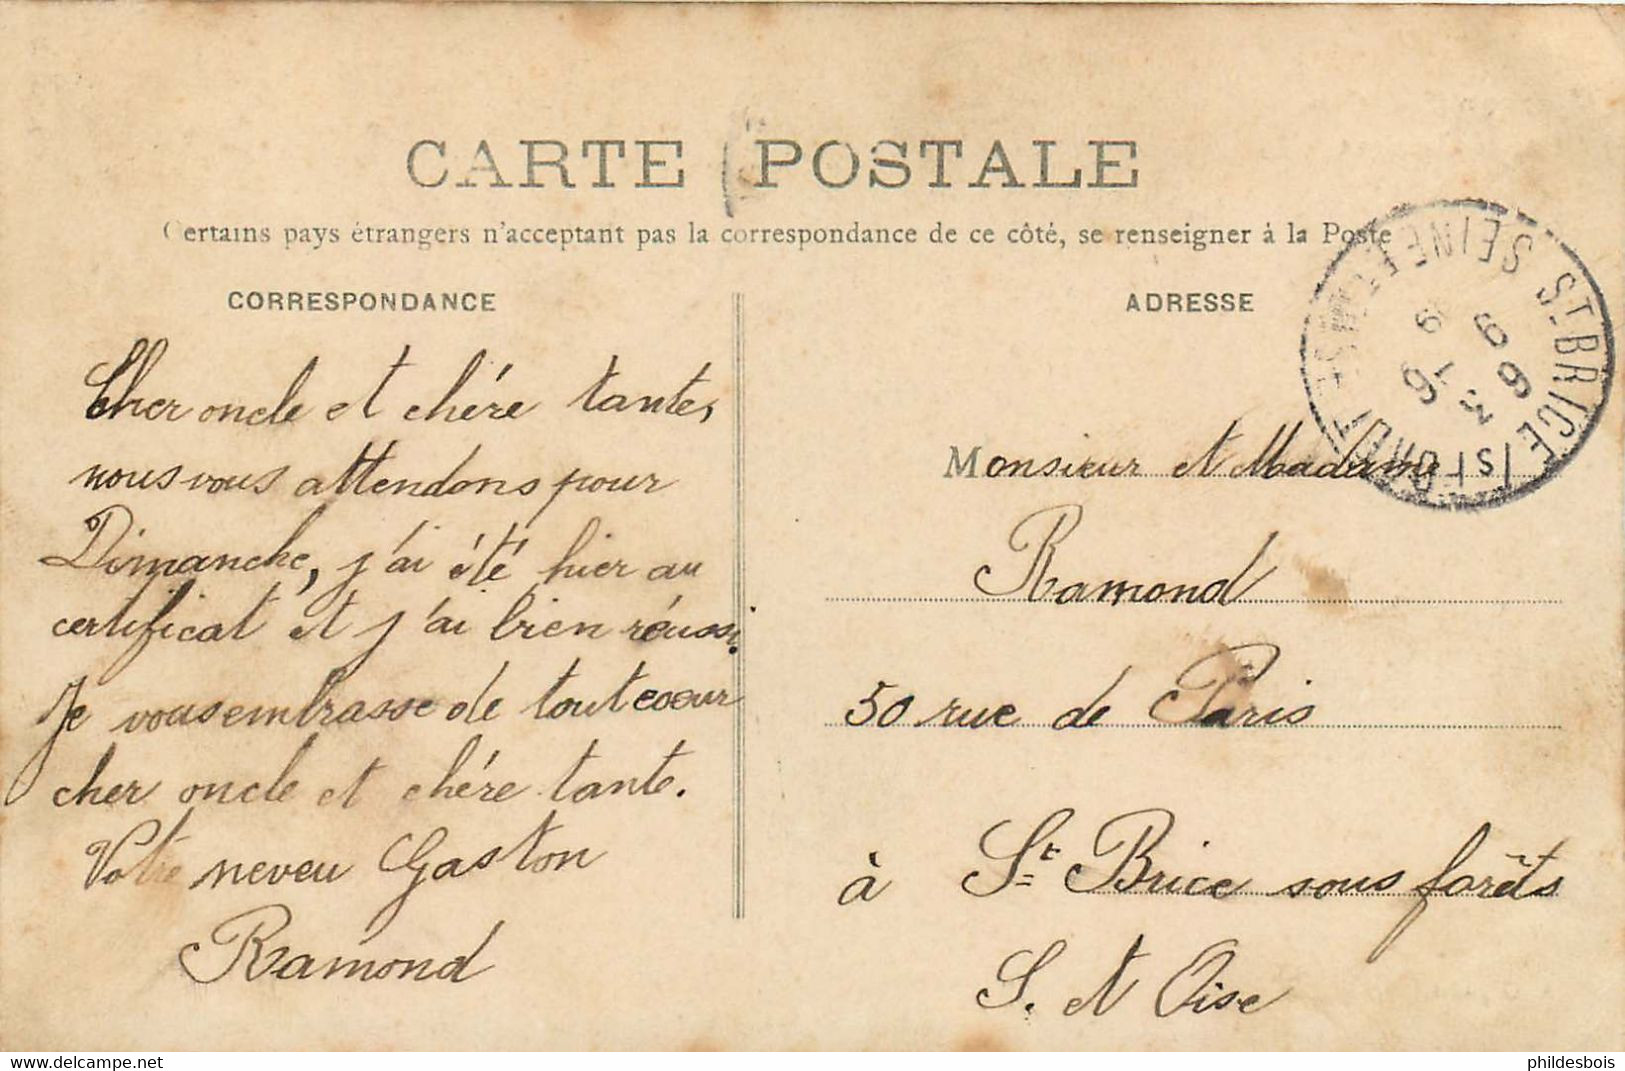 CARTE POSTALE
Certains pays étrangers n'acceptant pas la correspondance de ce côté, se renseigner à la Poste
CORRESPONDANCE
Cher oncle et chére tante,
nous vous attendons pour
Dimanche, j'ai été hier au
certificat et j'ai bien réussi.
Je vous embrasse de tout coeur
cher oncle et chére tante.
Votre neveu Gaston
Ramond
ADRESSE
Monsieur et Madame
Ramond
50 rue de Paris
à St Brice sous forêts
S. et Oise
ST BRICE
SEINE
phildesbois